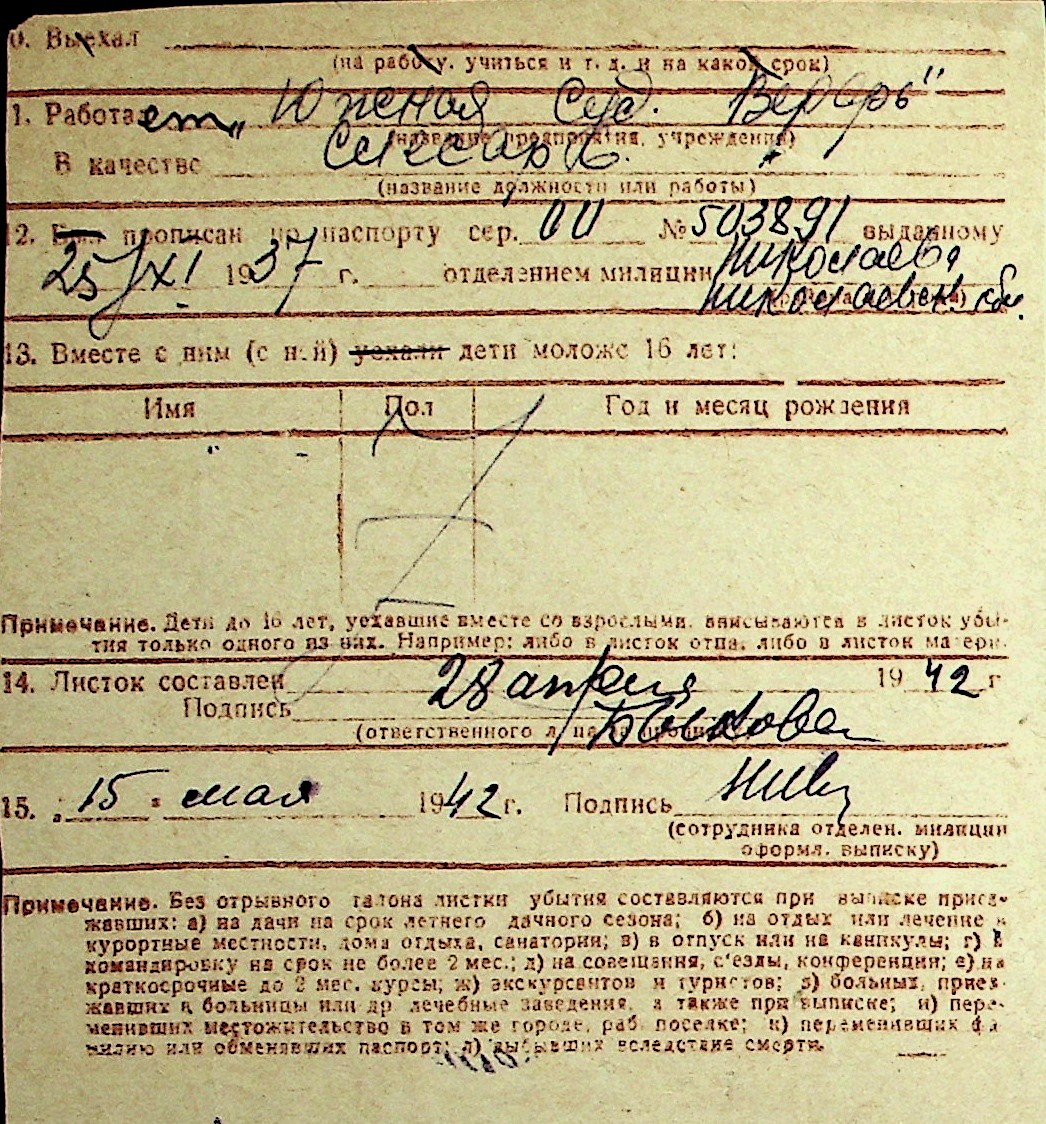 0. Выехал
(на работу, учиться и т. д. и на какой срок)
1. Работает „Южная Суд. Верфь"
(название предприятия, учреждения)
В качестве слесаря.
(название должности или работы)
12. Был прописан по паспорту сер. ОU №503891 выданному
25/XI 1937 г. отделением милиции Николаева
Николаевск. обл.
13. Вместе с ним (с ней) уехали дети моложе 16 лет:
Имя Пол Год и месяц рождения
Примечание. Дети до 16 лет, уехавшие вместе со взрослыми, вписываются в листок убы-
тия только одного из них. Например: либо в листок отца, либо в листок матери.
14. Листок составлен 28 апреля 1942 г
Подпись Быкова
(ответственного лица за
15. 15 мая 1942 г. Подпись
(сотрудника отделен. милиции
оформл. выписку)
Примечание. Без отрывного талона листки убытия составляются при выписке приез-
жавших: а) на дачи на срок летнего дачного сезона; б) на отдых или лечение в
курортные местности, дома отдыха, санатории; в) в отпуск или на каникулы; г) в
командировку на срок не более 2 мес.; д) на совещания, с'езды, конференции; е) на
краткосрочные до 2 мес. курсы; ж) экскурсантов и туристов; з) больных, приез-
жавших в больницы или др лечебные заведения, а также при выписке; и) пере-
менивших местожительство в том же городе, раб. поселке; к) переменивших фа
милию или обменявших паспорт; л) выбывших вследствие смерти.